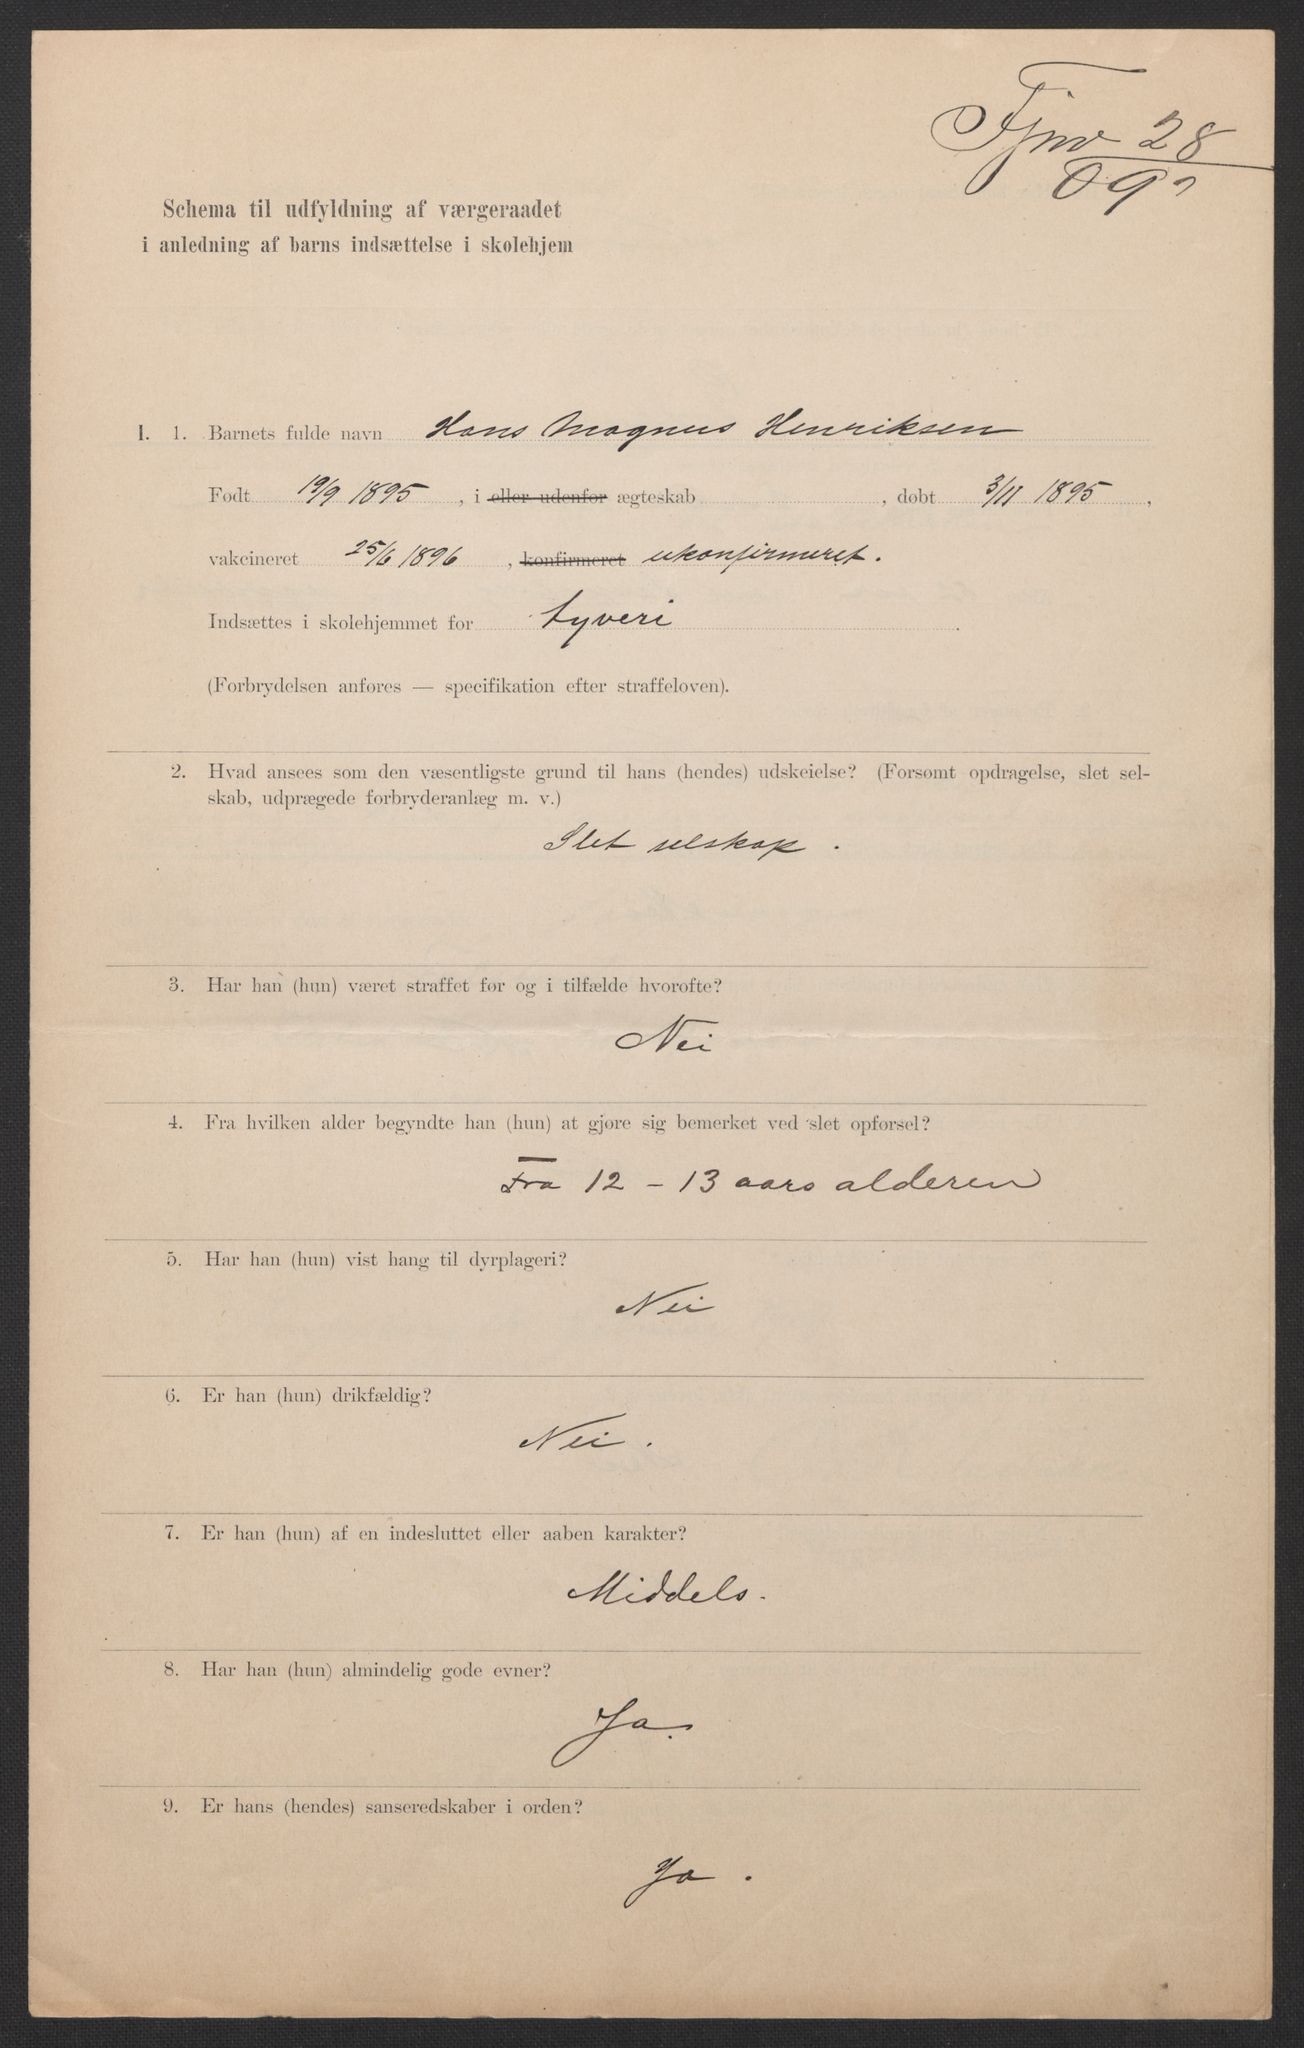 28
09
Schema til udfyldning af værgeraadet
i anledning af barns indsættelse i skolehjem
I. 1. Barnets fulde navn Hans Magnus Henriksen
Født 19/9 1895, i eller udenfor ægteskab, døbt 3/11 1895,
vakcineret 25/6 1896, konfirmeret ukonfirmeret.
Indsættes i skolehjemmet for tyveri.
(Forbrydelsen anføres — specifikation efter straffeloven).
2. Hvad ansees som den væsentligste grund til hans (hendes) udskeielse? (Forsømt opdragelse, slet sel-
skab, udprægede forbryderanlæg m. v.)
Slet selskap.
3. Har han (hun) været straffet før og i tilfælde hvorofte?
Nei
4. Fra hvilken alder begyndte han (hun) at gjøre sig bemerket ved slet opførsel?
Fra 12 - 13 aars alderen
5. Har han (hun) vist hang til dyrplageri?
Nei
6. Er han (hun) drikfældig?
Nei.
7. Er han (hun) af en indesluttet eller aaben karakter?
Middels.
8. Har han (hun) almindelig gode evner?
Ja.
9. Er hans (hendes) sanseredskaber i orden?
Ja.